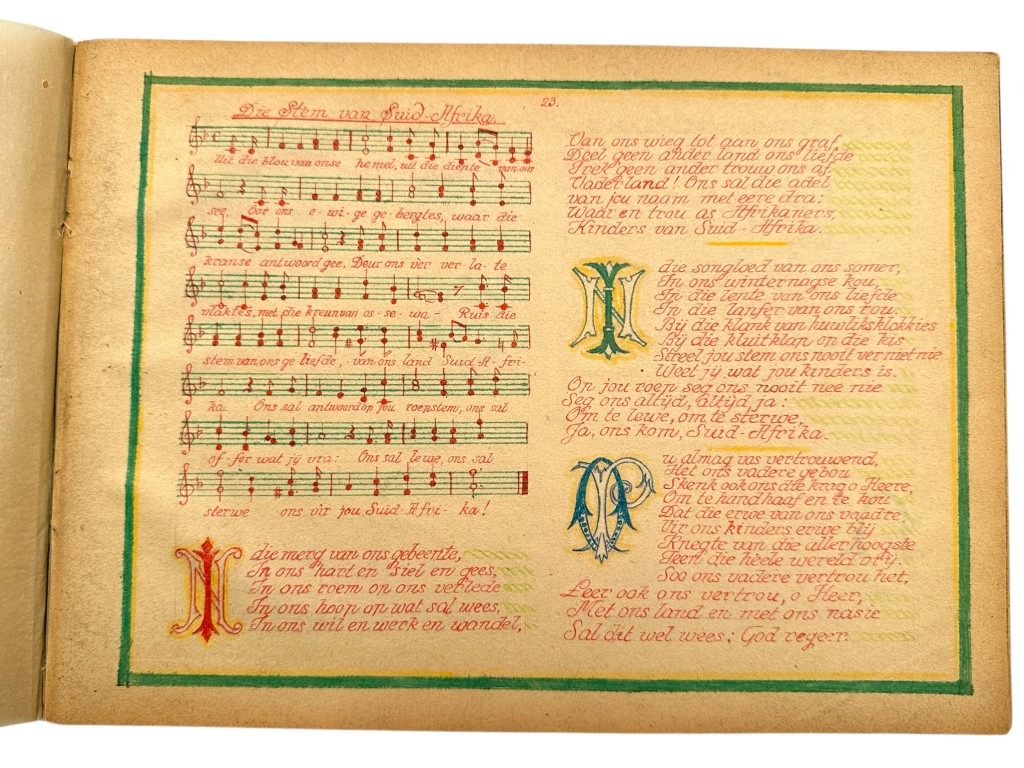 23.
Die Stem van Suid-Afrika.
Uit die blou van onse hemel, uit die diepte van ons
see, Oor ons e-wi-ge ge-bergtes, waar die
kranse antwoord gee. Deur ons vêr ver-la-te
vlaktes, met die kreun van os-se-wa- Ruis die
stem van ons ge-liefde, van ons land Suid-A-fri-
ka. Ons sal antwoord op jou roepstem, ons sal
of-fer wat jy vra: Ons sal lewe, ons sal
sterwe ons vir jou, Suid-Afri-ka!
IN die merg van ons gebeente,
In ons hart en siel en gees,
In ons roem op ons verlede
In ons hoop op wat sal wees,
In ons wil en werk en wandel,
Van ons wieg tot aan ons graf,
Deel geen ander land ons liefde
Trek geen ander trou ons af.
Vaderland! Ons sal die adel
van jou naam met eere dra:
Waar en trou as Afrikaners,
Kinders van Suid-Afrika.
IN die songloed van ons somer,
In ons winternagse kou,
In die lente van ons liefde
In die lanfer van ons rou.
Bij die klank van huwliksklokkies
Bij die kluitklap op die kis
Streel jou stem ons nooit verniet nie
Weet jij wat jou kinders is.
Op jou roep seg ons nooit nee nie
Seg ons altijd, altijd ja:
Om te lewe, om te sterwe,
Ja, ons kom, Suid-Afrika.
OP u almag vas vertrouwend,
Het ons vadere gebou
Skenk ook ons die krag o Heere,
Om te handhaaf en te hou
Dat die erwe van ons vaadre,
Vir ons kinders erwe blij
Knegte van die allerhoogste
Teen die heele wereld vrij.
Soo ons vadere vertrou het,
Leer ook ons vertrou, o Heer,
Met ons land en met ons nasie
Sal dit wel wees: God regeer.